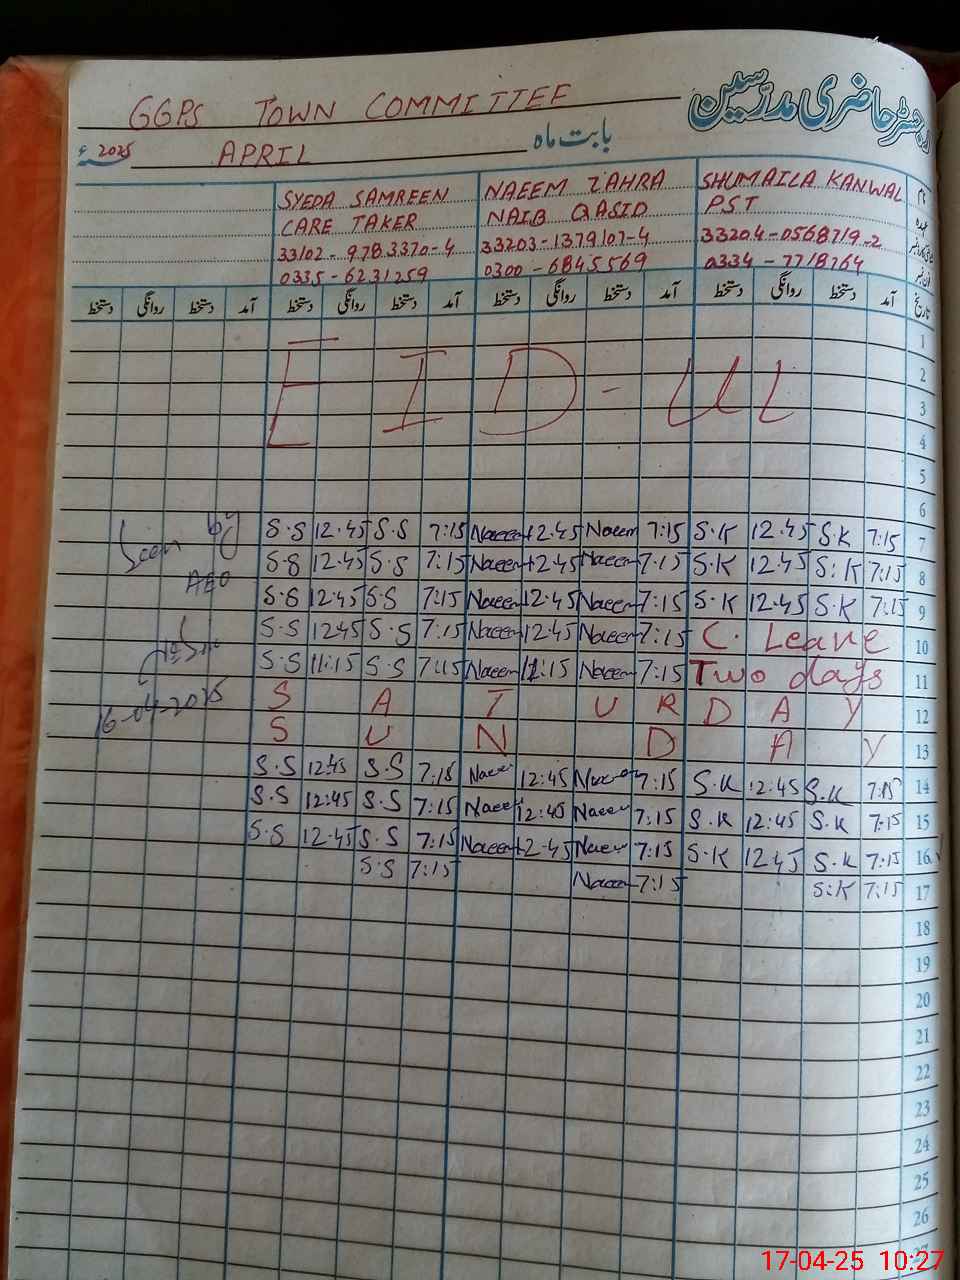 رجسٹر حاضری مدرسین
GGPS TOWN COMMITTEE
بابت ماہ APRIL 2025 ء
SYEDA SAMREEN NAEEM ZAHRA SHUMAILA KANWAL نام
CARE TAKER NAIB QASID PST عہدہ
33102-9783370-4 33203-1379107-4 33204-0568719-2
0335-6231259 0300-6845569 0334-7718764 فون نمبر
دستخط روانگی دستخط آمد دستخط روانگی دستخط آمد دستخط روانگی دستخط آمد دستخط روانگی دستخط آمد تاریخ
1
2
EID-UL
3
4
5
6
S.S 12.45 S.S 7:15 Naeem 12.45 Naeem 7:15 S.K 12.45 S.K 7:15 7
S.S 12.45 S.S 7:15 Naeem 12.45 Naeem 7:15 S.K 12.45 S.K 7:15 8
S.S 12.45 S.S 7:15 Naeem 12.45 Naeem 7:15 S.K 12.45 S.K 7:15 9
S.S 12.45 S.S 7:15 Naeem 12.45 Naeem 7:15 C. Leave 10
S.S 11:15 S.S 7:15 Naeem 11:15 Naeem 7:15 Two days 11
SATURDAY 12
SUNDAY 13
S.S 12:45 S.S 7:15 Naeem 12:45 Naeem 7:15 S.K 12:45 S.K 7:15 14
S.S 12:45 S.S 7:15 Naeem 12:45 Naeem 7:15 S.K 12:45 S.K 7:15 15
S.S 12.45 S.S 7:15 Naeem 12.45 Naeem 7:15 S.K 12.45 S.K 7:15 16
S.S 7:15 Naeem 7:15 S.K 7:15 17
18
19
20
21
22
23
24
25
26
27
Seen by
AEO
16-04-2025
17-04-25 10:27